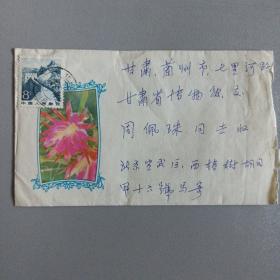 8
中国人民邮政
甘肃,兰州市,七里河路
甘肃省博物馆,交
周佩珠同志收
北京宣武区,西椿树胡同
甲十六号马寄